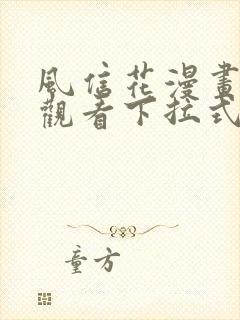 風信花漫畫
觀看下拉式
童方